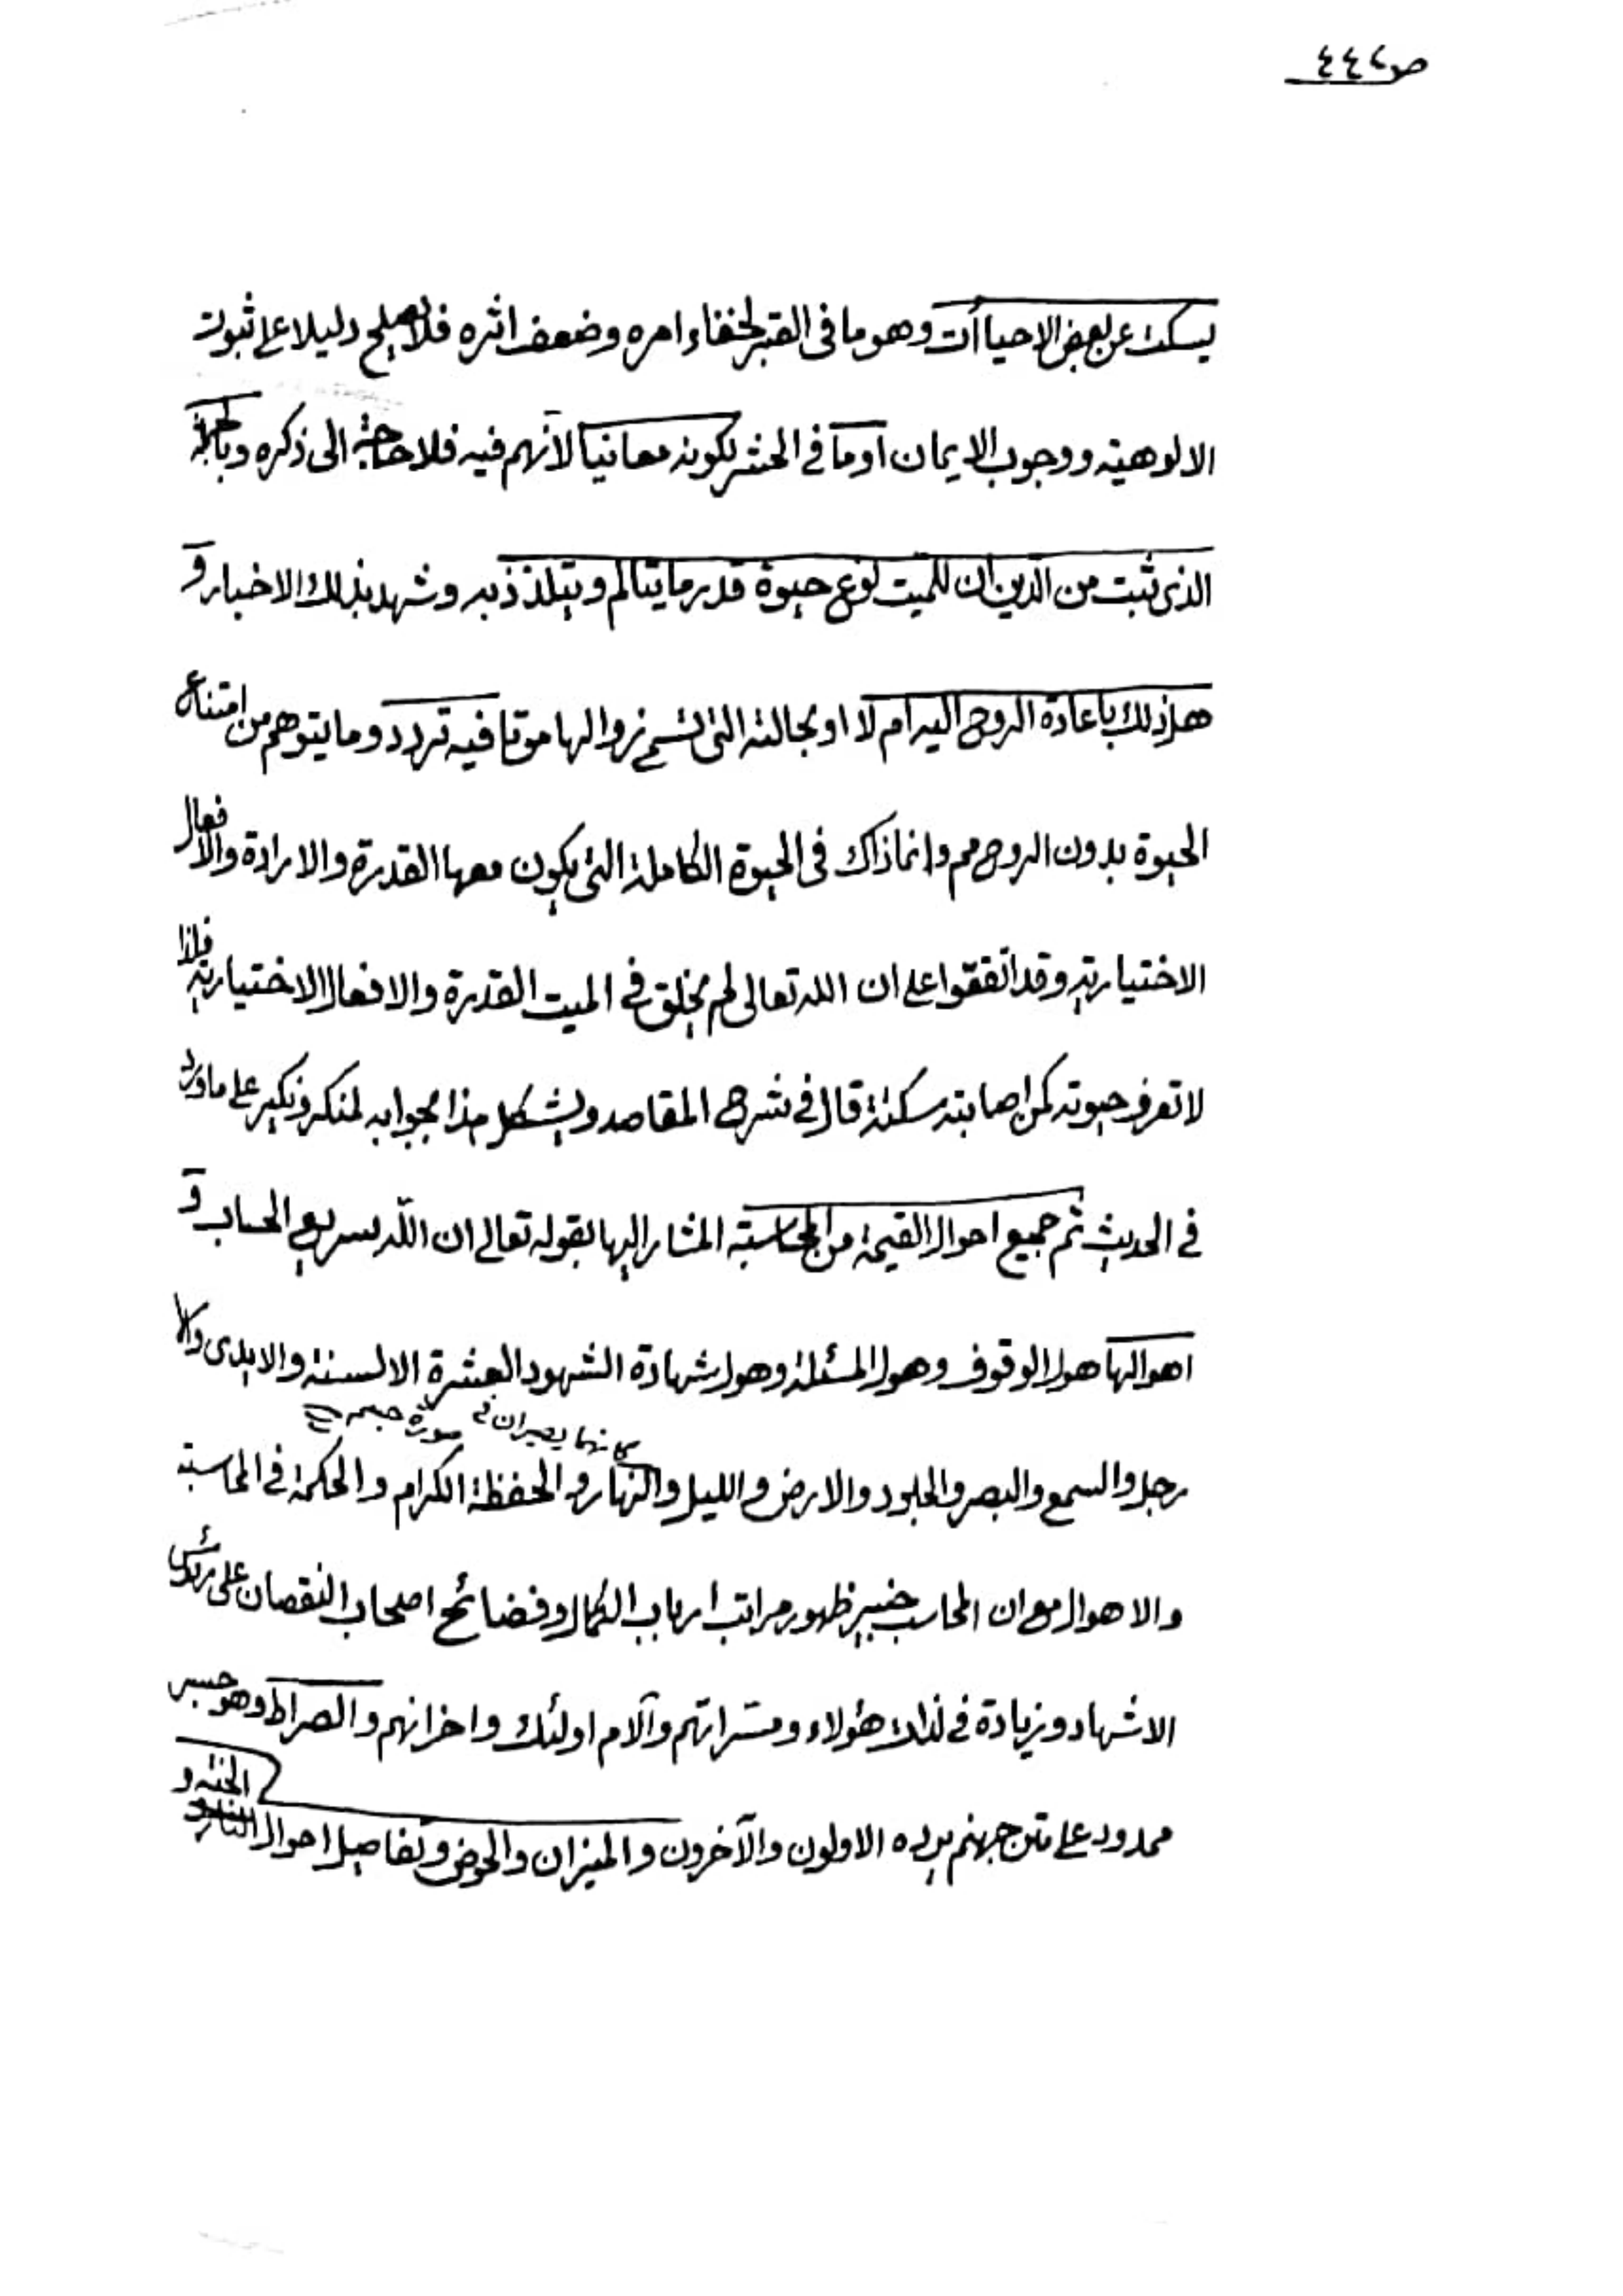 صـ ٤٤٢
يسكت عن بعض الاحياآت وهو ما فى القبر لخفاء امره وضعف اثره فلا يصلح دليلا على ثبوت
الالوهية ووجوب الايمان او ما فى الحشر لكونه معانيا لانهم فيه فلا حاجة الى ذكره وبالجملة
الذى ثبت من الدين ان للميت نوع حيوة قدر ما يتالم ويتلذذ به وشهد بذلك الاخبار و
هل ذلك باعادة الروح اليه ام لا او بحالته التى تسمى زوالها موتا فيه تردد وما يتوهم من امتناع
الحيوة بدون الروح مم وانما ذاك فى الحيوة الكاملة التى يكون معها القدرة والارادة والافعال
الاختيارية وقد اتفقوا على ان الله تعالى لم يخلق فى الميت القدرة والافعال الاختيارية فلذا
لا تعرف حيوته كمن اصابته سكتة قال فى شرح المقاصد ويشكل هذا بجوابه لمنكر ونكير على ما ورد
فى الحديث ثم جميع احوال القيمة من المحاسبة المشار اليها بقوله تعالى ان الله سريع الحساب و
اهوالها هول الوقوف وهول المسئلة وهول شهادة الشهود العشرة الالسنة والايدى والا
كانهما يصيران فى صورة جسم
رجل والسمع والبصر والجلود والارض والليل والنهار والحفظة الكرام والحكمة فى المحاسبة
والاهوال مع ان المحاسب خبير ظهور مراتب ارباب الكمال وفضائح اصحاب النقصان على رؤس
الاشهاد وزيادة فى لذات هؤلاء ومسراتهم وآلام اولئك واحزانهم والصراط وهو جسر
ممدود على متن جهنم يرده الاولون والآخرون والميزان والحوض وتفاصيل احوال الجنة و النار و